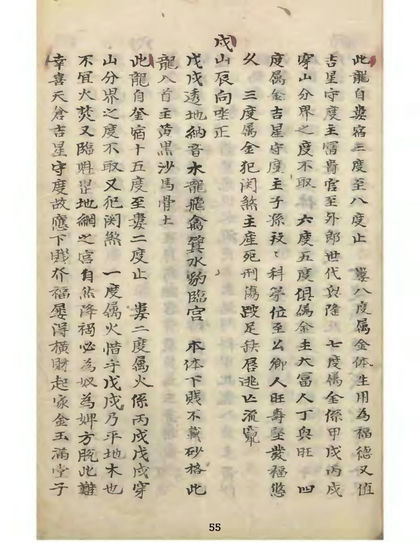 此龍自婁宿三度至八度止 婁八度屬金体生用為福德又值
吉星守度主富貴官至外郎世代興隆 七度屬金係甲戌丙戌
穿山分界之度不取 六度五度俱屬金主大富人丁興旺 四
度屬金吉星守度主子孫 科第位至公卿人旺壽 發福悠
久 三度屬金犯関煞主產死刑傷跛足 唇逃亡流竄
戌山辰向坐正
戊戌透地納音水龍飛禽箕水豹臨宮 本体下賤不載砂格此
龍入首主黄黑沙馬骨土
此龍自奎宿十五度至婁二度止 婁二度屬火係丙戌戊戌穿
山分界之度不取又犯関煞 一度屬火惜乎戊戌乃平地木也
不宜火焚又臨 罡地網之宮自然降禍必為奴為婢方脱此難
幸喜天倉吉星守度故應下賤 福屡得横財起家金玉滿堂子
55